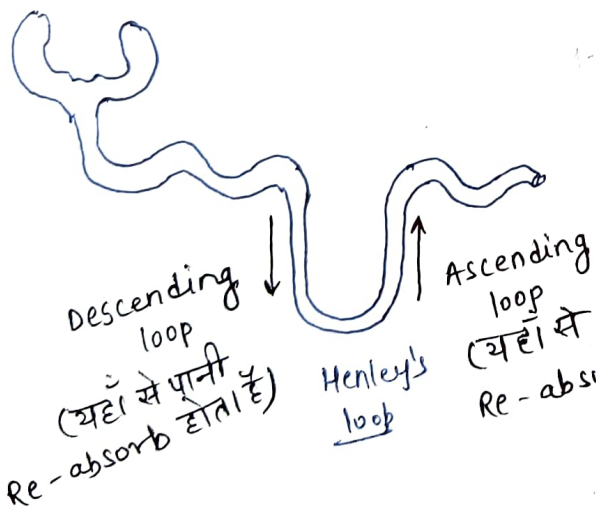 Descending
loop
(यहाँ से पानी
Re-absorb होता है)
Henley's
loop
Ascending
loop
(यहाँ से
Re-abs